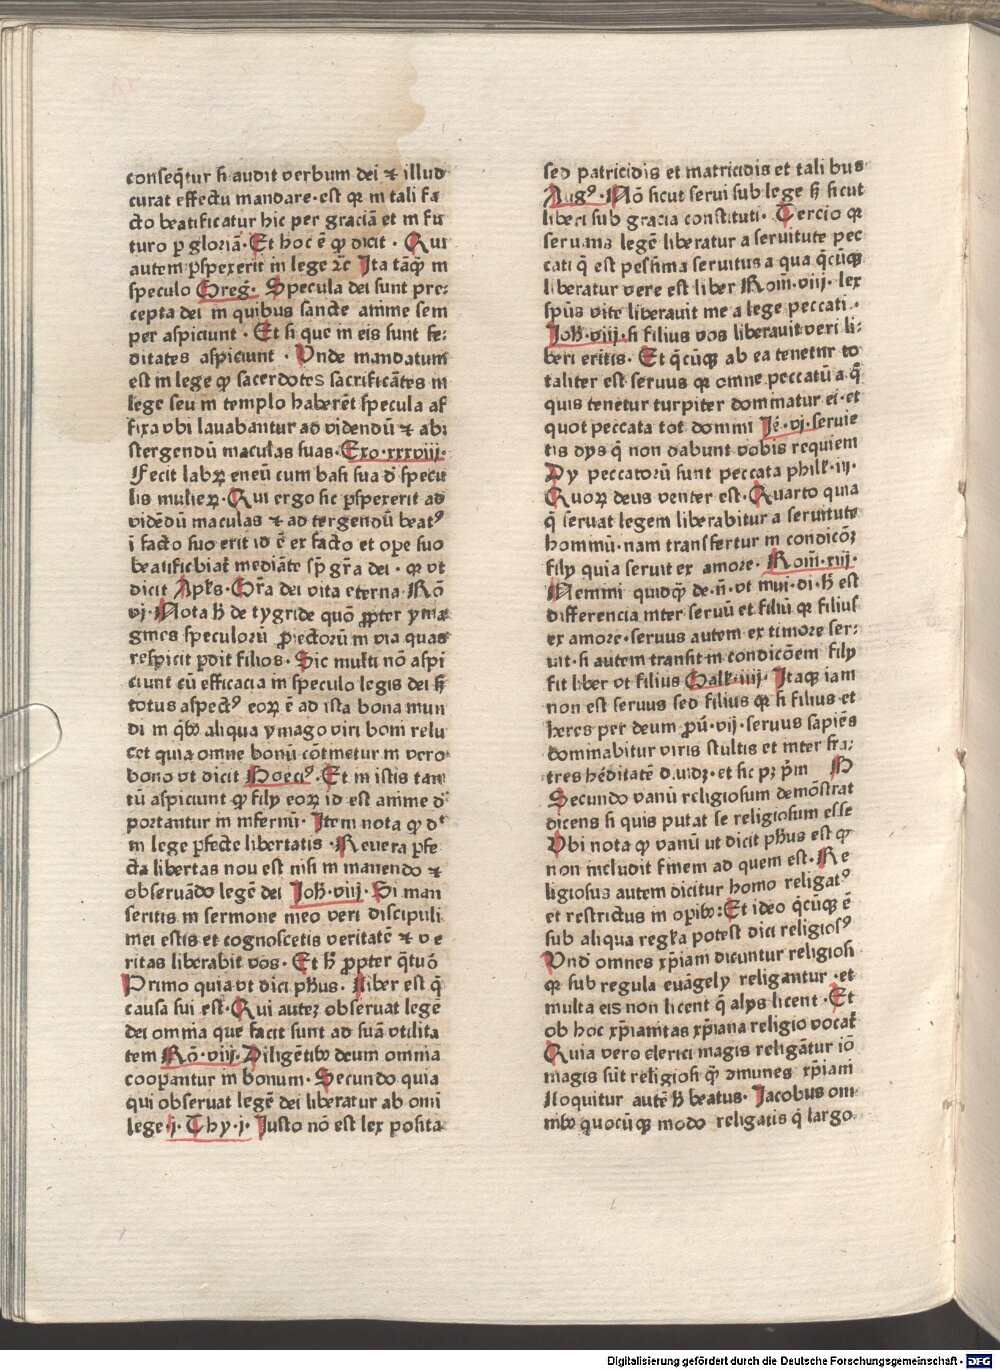 conseq̄tur si audit verbum dei ⁊ illud
curat effectu mandare· est qꝛ in tali fa
cto beatificatur hic per graciā et in fu
turo p gloriā· Et hoc ē ꝙ dicit · Qui
autem ꝑspexerit in lege ⁊c̄ Ita tāq̄ꝫ in
speculo Greg̃· Specula dei sunt pre⸗
cepta dei in quibus sancte anime sem
per aspiciunt · Et si que in eis sunt fe⸗
ditates aspiciunt · Vnde mandatum
est in lege ꝙ sacerdotes sacrificātes in
lege seu in templo haberēt specula af
fixa vbi lauabantur ad videndū ⁊ abi
stergendū maculas suas· Exo·xxxviii·
Fecit labꝝ eneū cum basi sua d̄ specu
lis mulieꝝ· Qui ergo sic ꝑspexerit ad
vidēdū maculas ⁊ ad tergendū beatꝰ
ī facto suo erit id ē ex facto et ope suo
beatificbiat̄ mediāte sp̄ gr̄a dei · qꝛ vt
dicit Apl̄s· Gr̄a dei vita eterna Rō
vj· Nota h̄ de tygride quō ꝓpter yma
gines speculorū ꝓiectorū in via quas
respicit ꝑdit filios· Sic multi nō aspi
ciunt cū efficacia in speculo legis dei sꝫ
totus aspectꝰ eoꝝ ē ad ista bona mun
di in q̄bꝰ aliqua ymago viri boni relu
cet quia omne bonū cōtinetur in vero
bono vt dicit Boeciꝰ· Et in istis tan
tū aspiciunt ꝙ filij eoꝝ id est anime d̄
portantur in infernū· Item nota ꝙ dᵗ
in lege ꝑfecte libertatis · Reuera ꝑfe
cta libertas nou est nisi in manendo ⁊
obseruādo legē dei Joh̄·viij· Si man
seritis in sermone meo veri discipuli
mei estis et cognoscetis veritatē ⁊ ve
ritas liberabit vos· Et h̄ ꝓpter q̄tuō
Primo quia vt dicit ph̄us· Liber est q̄
causa sui est· Qui auteꝫ obseruat legē
dei omnia que facit sunt ad suā vtilita
tem Rō·viij· Diligētibꝰ deum omnia
coopantur in bonum· Secundo quia
qui obseruat legē dei liberatur ab omī
lege j· Thy·j· Justo nō est lex posita
sed patricidis et matricidis et talibus
Augꝰ· Nō sicut serui sub lege sꝫ sicut
liberi sub gracia constituti· Tercio qꝛ
seruans legē liberatur a seruitute pec
cati q̄ est pessima seruitus a qua q̄cūqꝫ
liberatur vere est liber Rom̄·viij· lex
spūs vite liberauit me a lege peccati·
Joh̄·viij· si filius vos liberauit veri li⸗
beri eritis· Et q̄cūqꝫ ab ea tenetur to
taliter est seruus qꝛ omne peccatū a q̄
quis tenetur turpiter dominatur ei· et
quot peccata tot domini Je̅·vj· seruie
tis dijs q̄ non dabunt vobis requiem
Dij peccatorū sunt peccata philꝭ·iij·
Quoꝝ deus venter est· Quarto quia
q̄ seruat legem liberabitur a seruitute
hominū· nam transfertur in condicōꝫ
filij quia seruit ex amore· Rom̄·xiij·
Nemini quidq̄ de·n̄·vt inui·di· h̄ est
differencia inter seruū et filiū qꝛ filius
ex amore· seruus autem ex timore ser⸗
uit· si autem transit in condicōem filij
fit liber vt filius Galꝭ·iiij· Itaqꝫ iam
non est seruus sed filius qꝛ si filius et
heres per deum ꝓū·vij· seruus sapiēs
dominabitur viris stultis et inter fra⸗
tres hēditatē d.uidꝫ· et sic pꝫ p̄m B
Secundo vanū religiosum demōstrat
dicens si quis putat se religiosum esse
Vbi nota ꝙ vanū ut dicit ph̄us est ꝙ
non includit finem ad quem est· Re
ligiosus autem dicitur homo religatꝰ
et restrictus in oꝑibꝰ: Et ideo q̄cūqꝫ ē
sub aliqua regl̄a potest dici religiosꝰ
Vnd̄ omnes xp̄iani dicuntur religiosi
qꝛ sub regula euāgelij religantur · et
multa eis non licent q̄ alijs licent · Et
ob hoc xp̄ianitas xp̄iana religio vocat̄
Quia vero clerici magis religātur iō
magis sūt religiosi q̄ꝫ ꝯmunes xp̄iani
Iloquitur autē h̄ beatus· Jacobus om
nibꝰ quocūqꝫ modo religatis q̄ largo
Digitalisierung gefördert durch die Deutsche Forschungsgemeinschaft · DFG